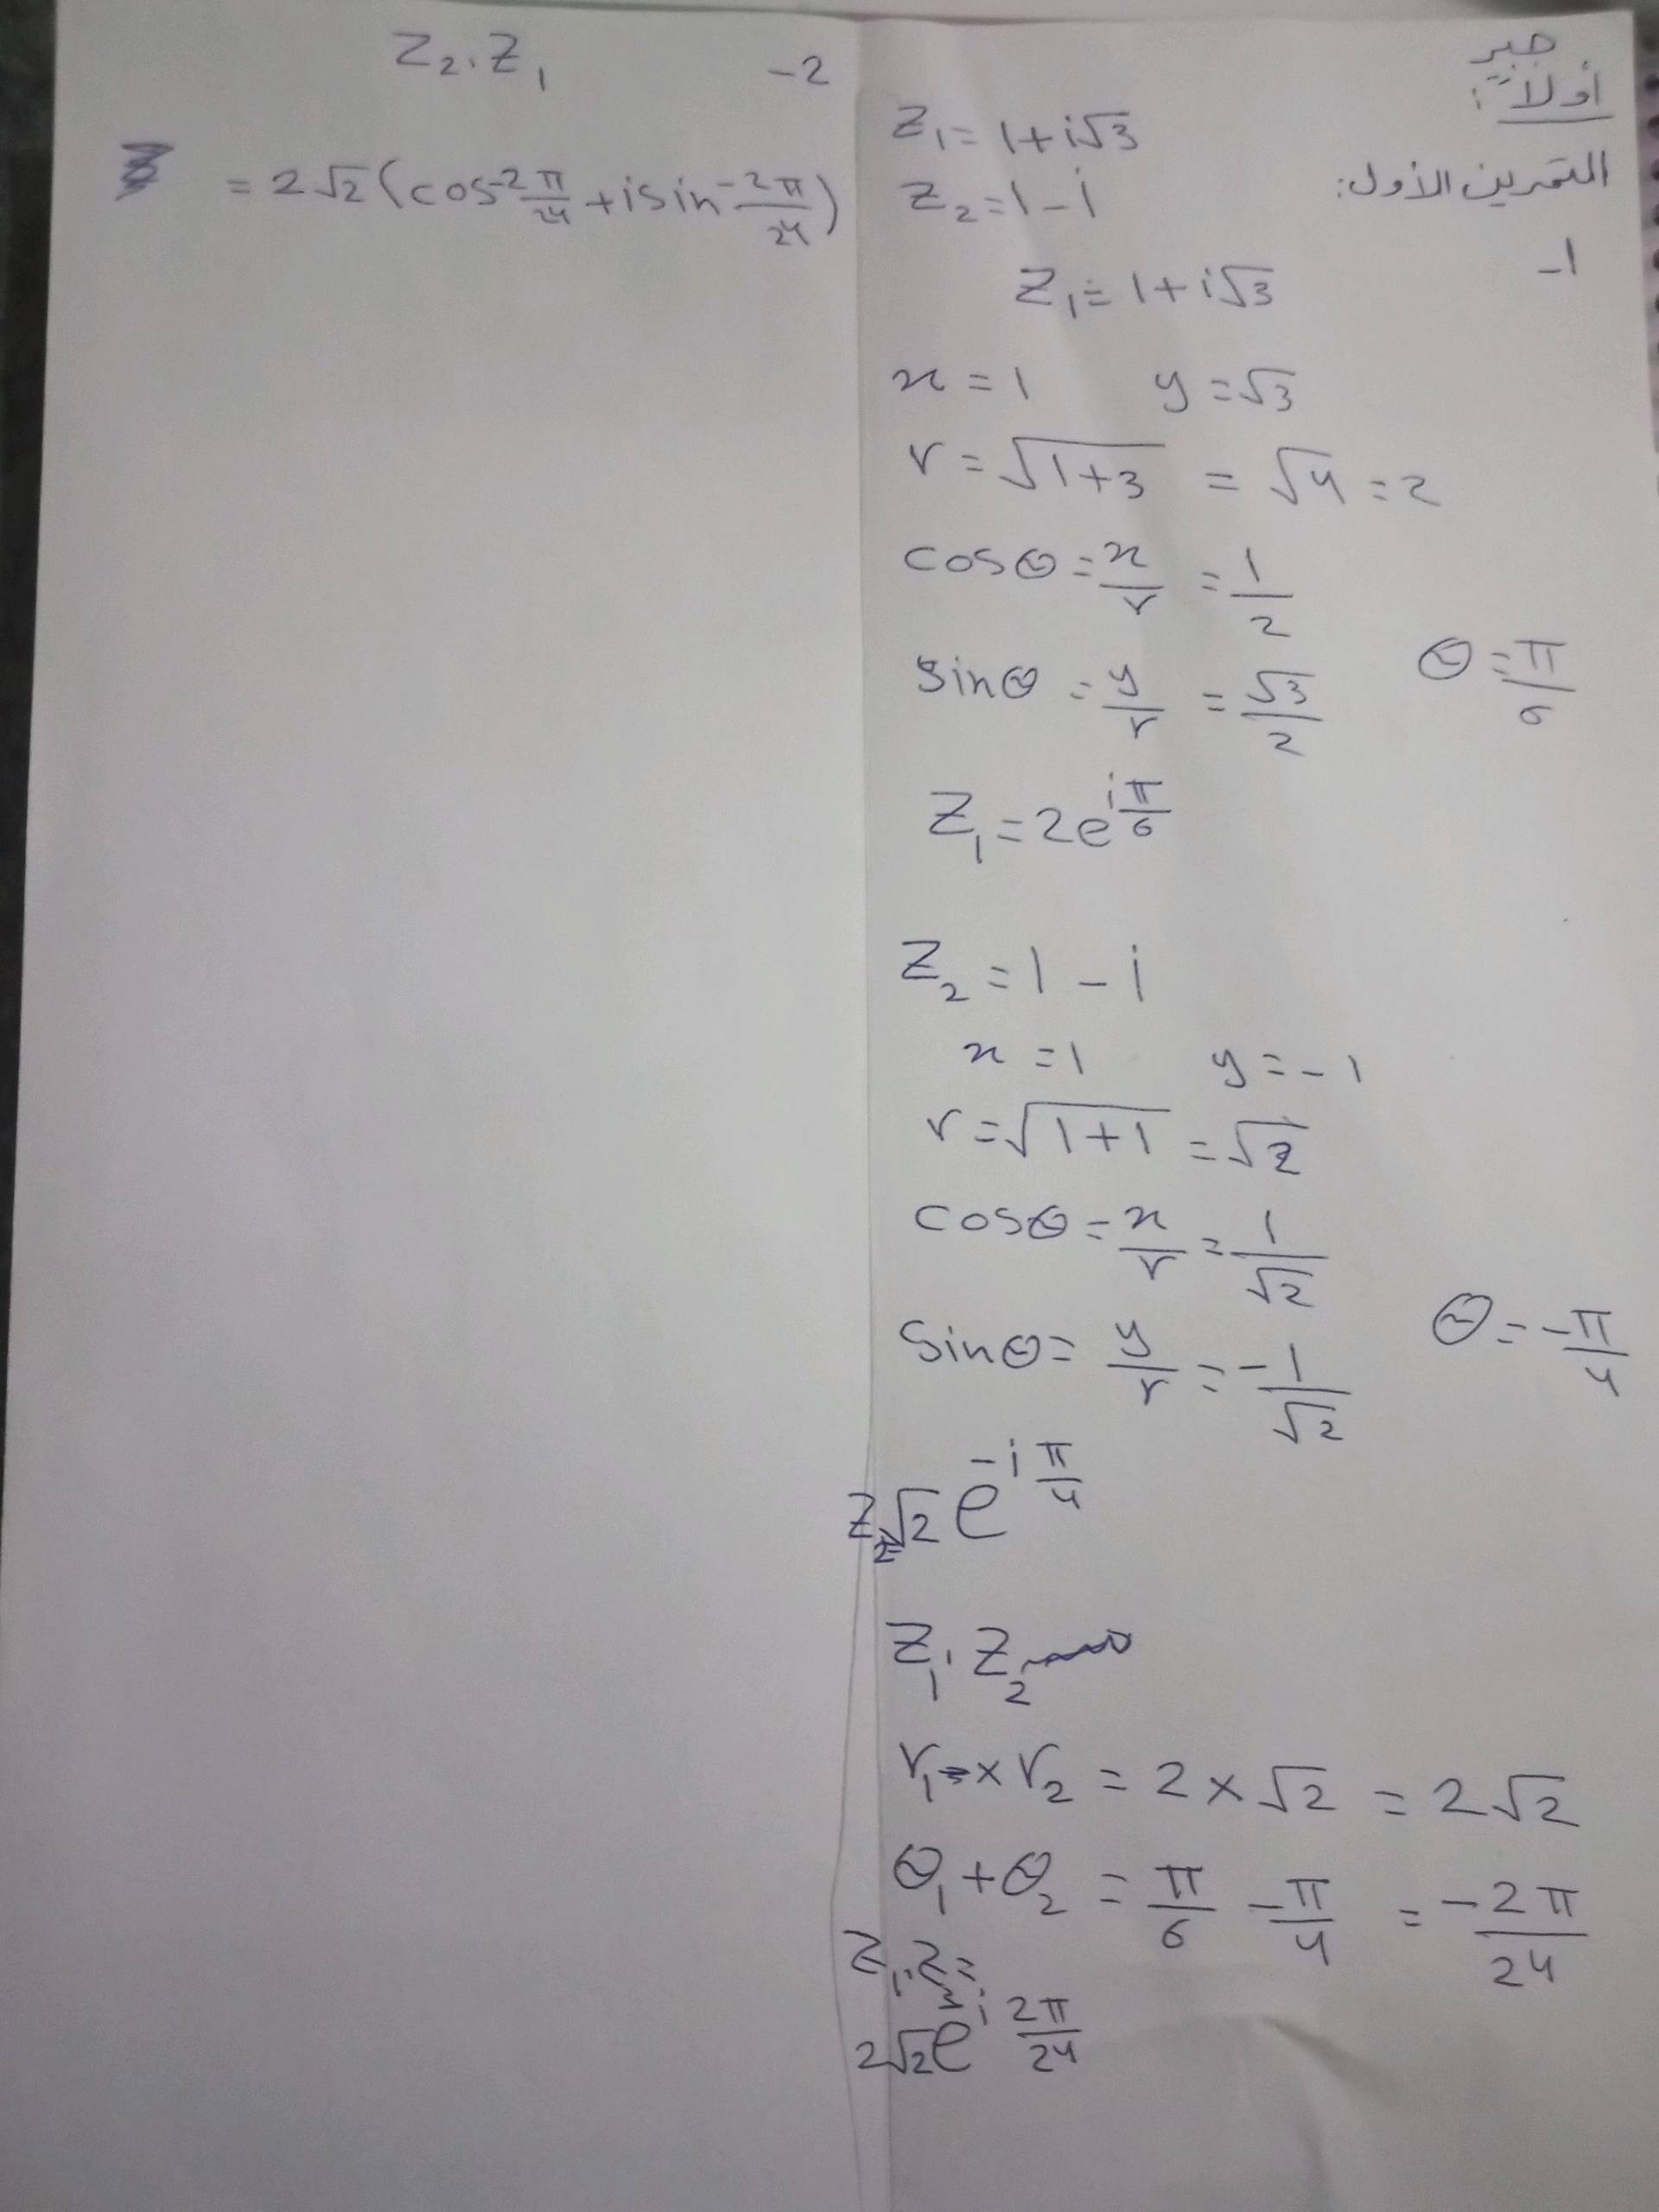 جبر
أولاً:
التمرين الأول:
Z₁ = 1 + i√3
Z₂ = 1 - i
1-
Z₁ = 1 + i√3
x = 1 y = √3
r = √(1+3) = √4 = 2
cosθ = x/r = 1/2
sinθ = y/r = √3/2 θ = π/6
Z₁ = 2e^(iπ/6)
Z₂ = 1 - i
x = 1 y = -1
r = √(1+1) = √2
cosθ = x/r = 1/√2
sinθ = y/r = -1/√2 θ = -π/4
Z₂ = √2 e^(-iπ/4)
Z₁.Z₂
r₁ × r₂ = 2 × √2 = 2√2
θ₁ + θ₂ = π/6 - π/4 = -2π/24
Z₁.Z₂ =
2√2 e^(-i 2π/24)
2- Z₂.Z₁
= 2√2 (cos -2π/24 + i sin -2π/24)